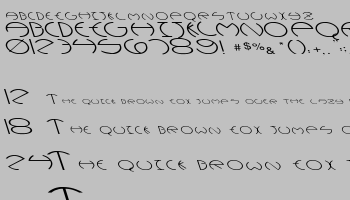 ABCDEFGHIJKLMNOPQRSTUVWXYZ
ABCDEFGHIJKLMNOPQR
0123456789! #$%& * (),+.
12 THE QUICK BROWN FOX JUMPS OVER THE LAZY
18 THE QUICK BROWN FOX JUMPS
24 THE QUICK BROWN FOX
T